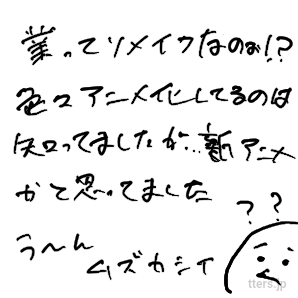 業ってリメイクなのぉ!?
色々アニメ化してるのは
知ってましたが…新アニメ
かと思ってました
う〜ん
ムズカシイ
??
tters.jp